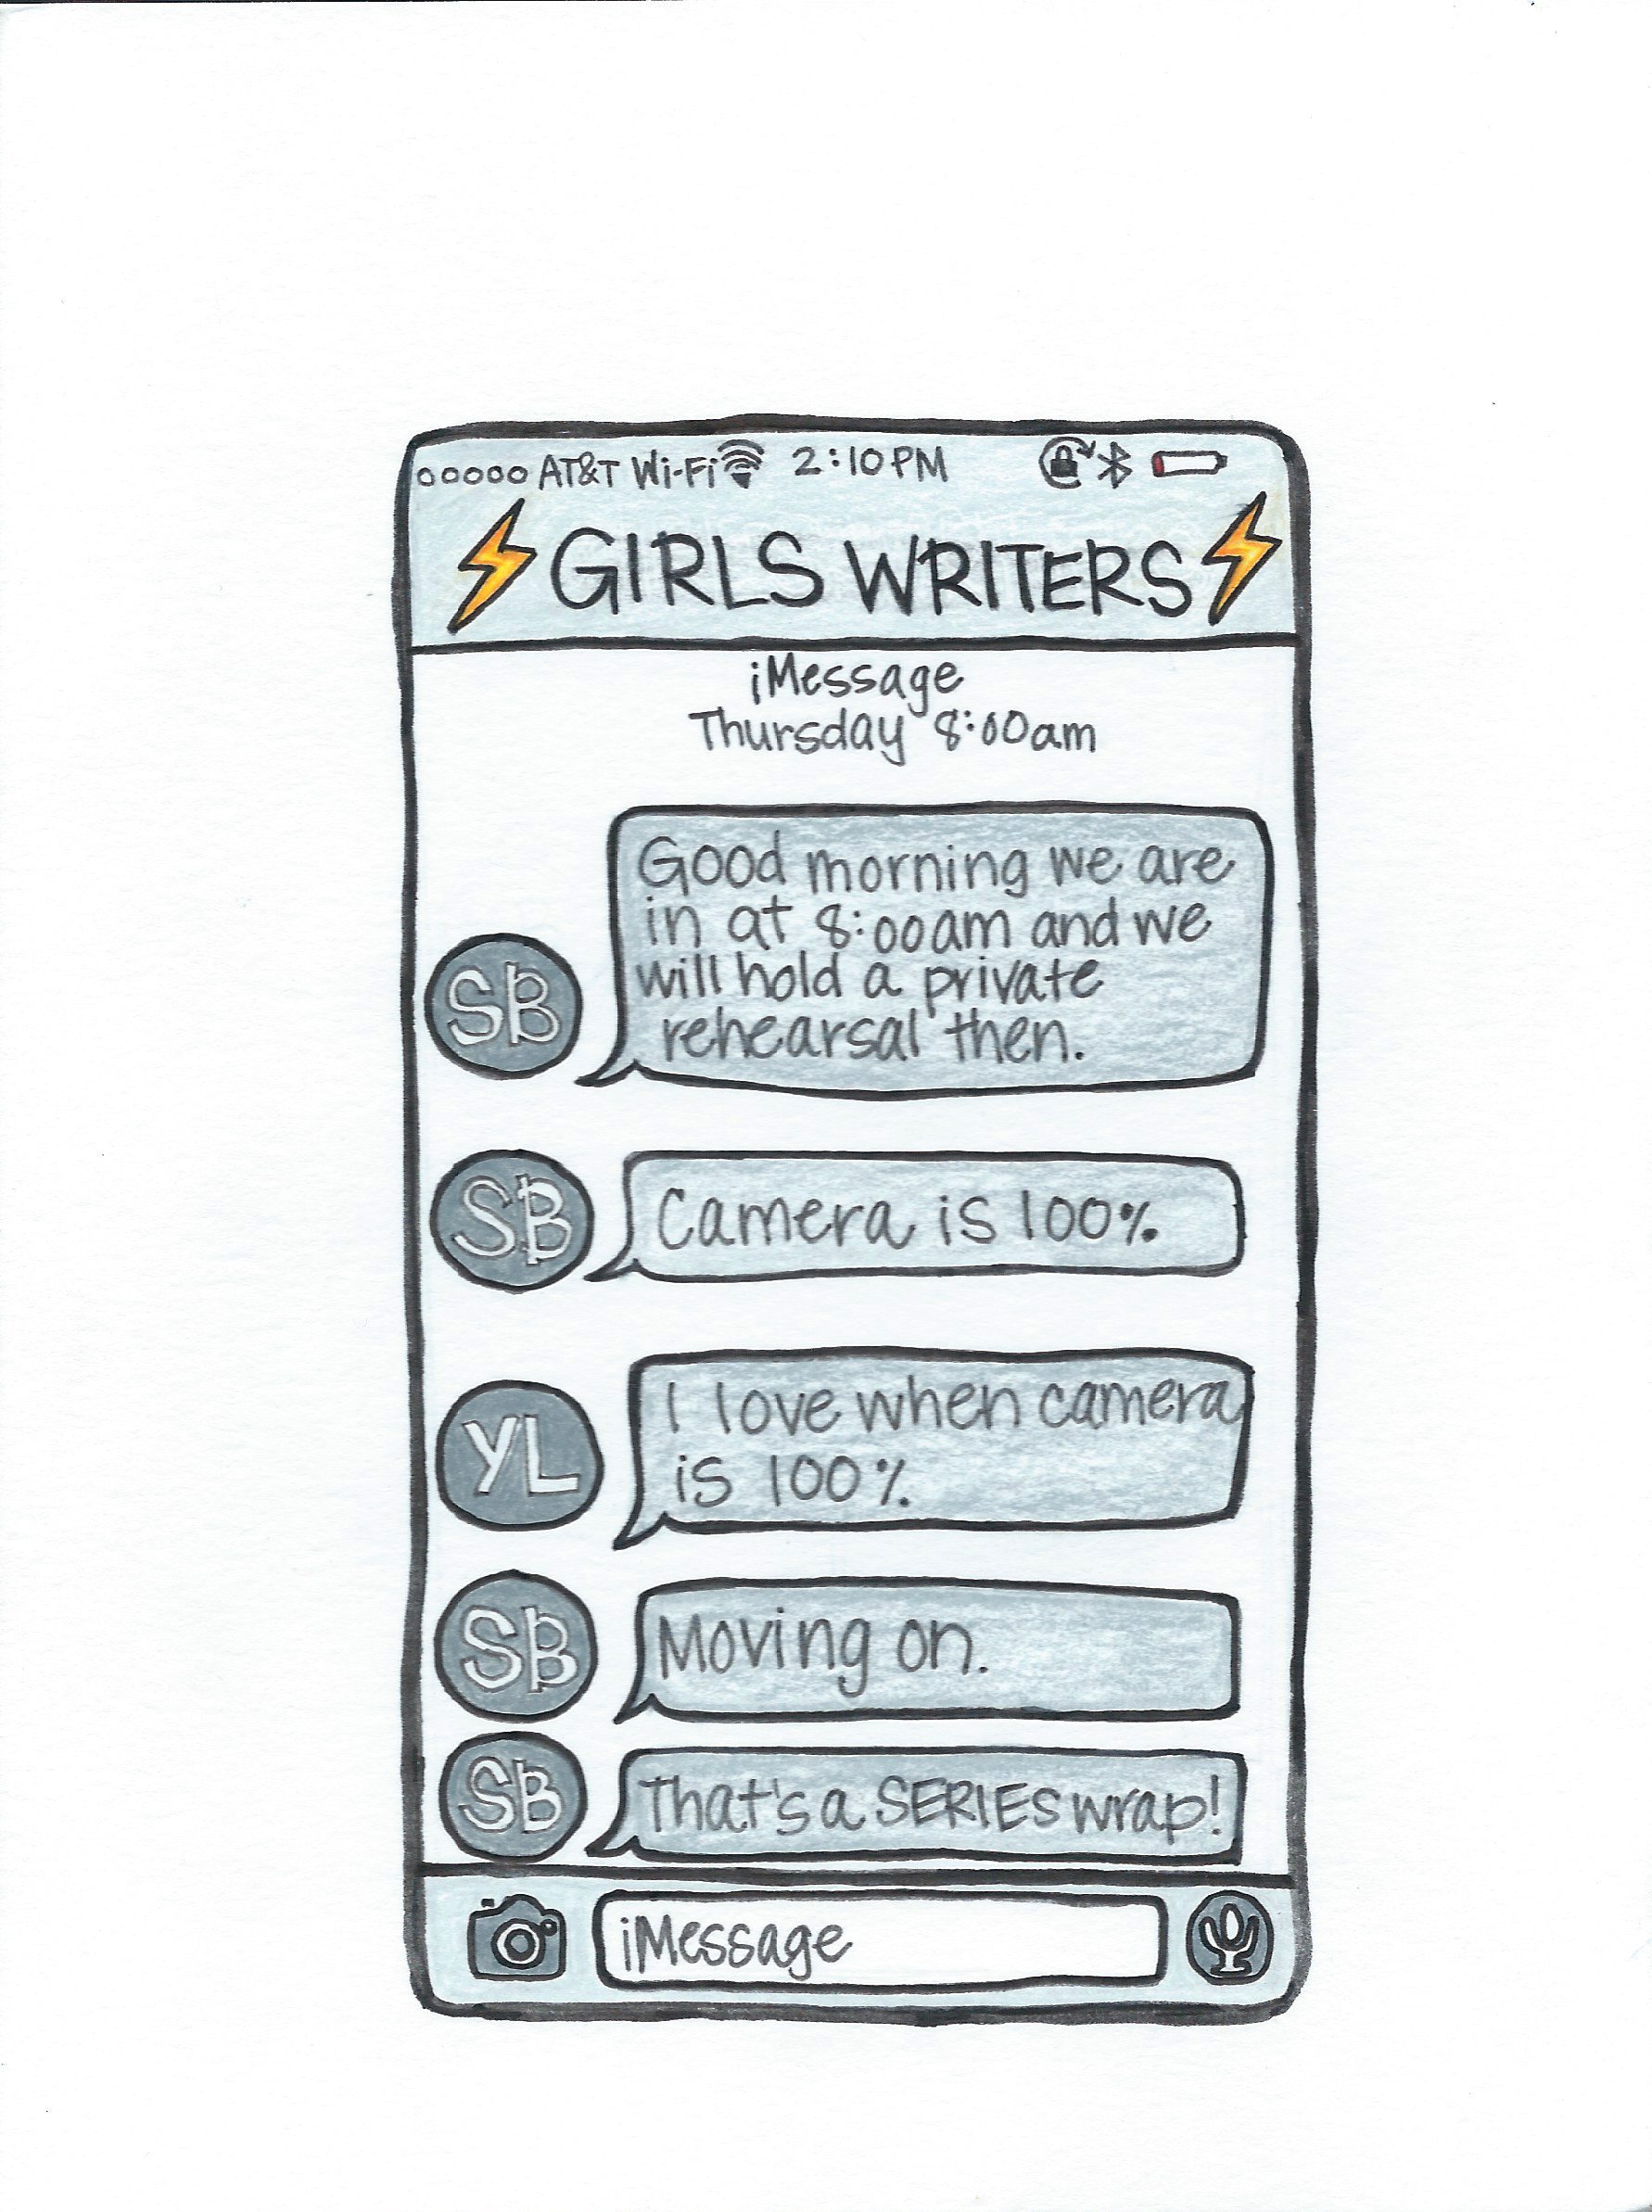 ooooo AT&T Wi-Fi 2:10PM
GIRLS WRITERS
iMessage
Thursday 8:00am
Good morning we are
in at 8:00am and we
will hold a private
rehearsal then.
SB
SB
Camera is 100%
I love when camera
is 100%
YL
SB
Moving on.
SB
That's a SERIES wrap!
iMessage